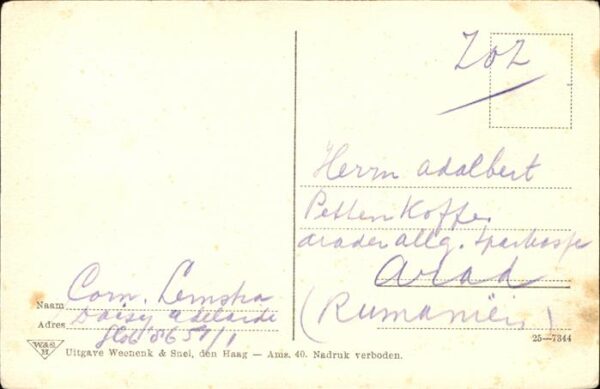 ZOZ
Herrn Adalbert
Pettenkoffer
arader allg. Sparkasse
Arad
(Rumaniën)
Naam Corn. Lemstra
Adres Daisy Adelaide
W&S
H
Uitgave Weenenk & Snel, den Haag — Ams. 40. Nadruk verboden.
25—7344